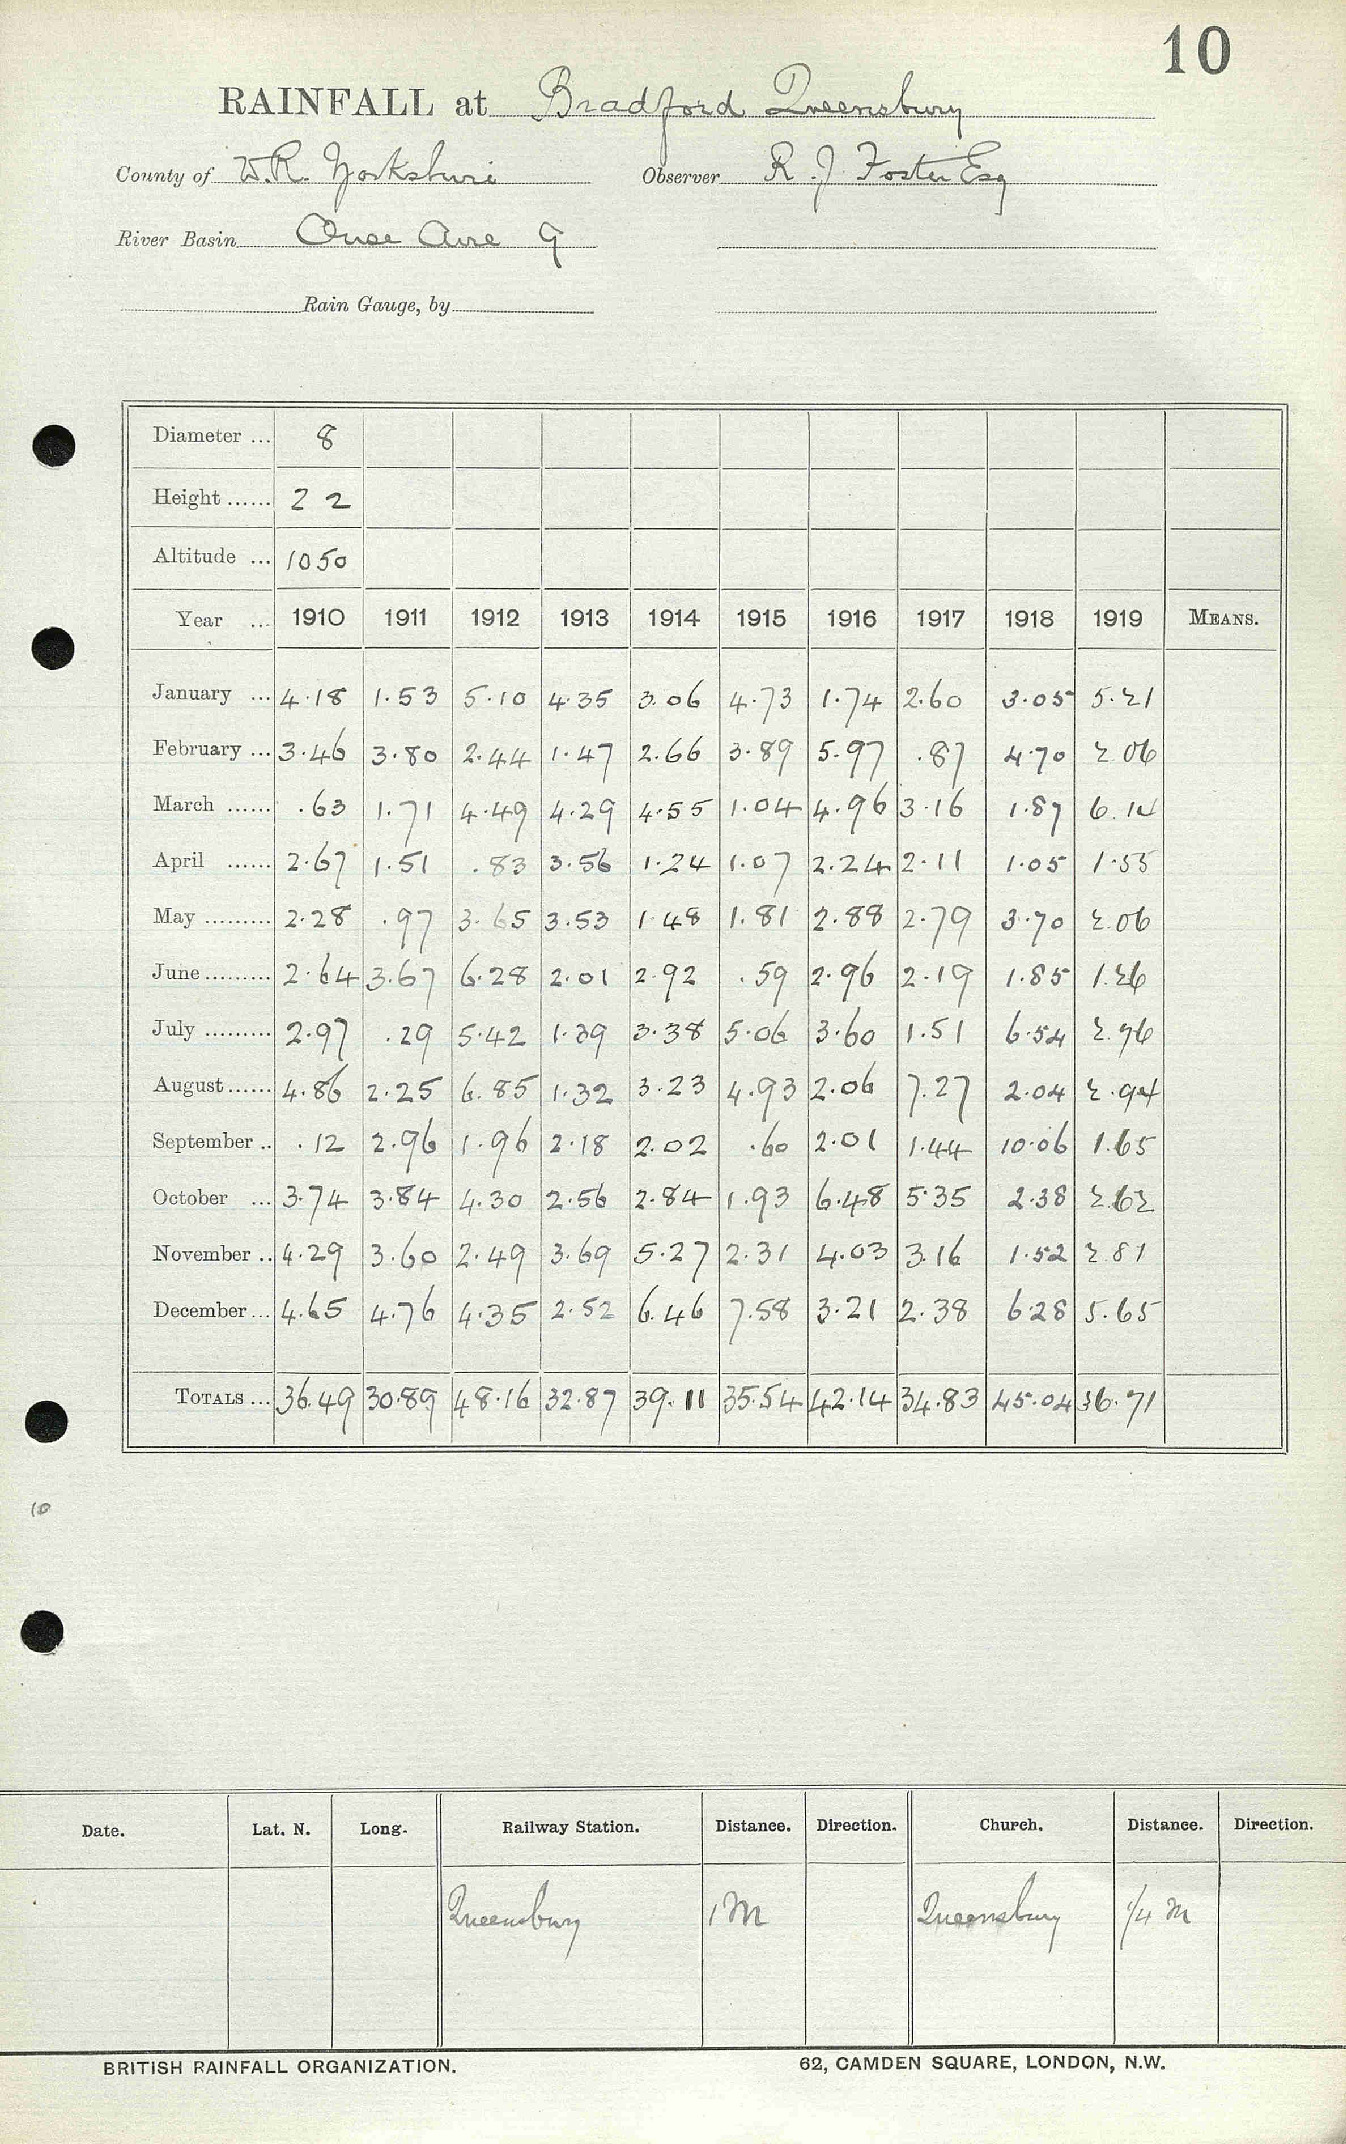 10
RAINFALL at Bradford Queensbury
County of W.R. Yorkshire Observer R. J. Foster Esq
River Basin Ouse Aire 9
Rain Gauge, by
Diameter ... 8
Height ...... 2 2
Altitude ... 1050
Year ... 1910 1911 1912 1913 1914 1915 1916 1917 1918 1919 MEANS.
January ... 4.18 1.53 5.10 4.35 3.06 4.73 1.74 2.60 3.05 5.21
February ... 3.46 3.80 2.44 1.47 2.66 3.89 5.97 .87 4.70 2.06
March ...... .63 1.71 4.49 4.29 4.55 1.04 4.96 3.16 1.87 6.14
April ...... 2.67 1.51 .83 3.56 1.24 1.07 2.24 2.11 1.05 1.55
May ......... 2.28 .97 3.65 3.53 1.48 1.81 2.88 2.79 3.70 2.06
June ......... 2.64 3.67 6.28 2.01 2.92 .59 2.96 2.19 1.85 1.26
July ......... 2.97 .29 5.42 1.39 3.38 5.06 3.60 1.51 6.54 2.76
August ...... 4.86 2.25 6.85 1.32 3.23 4.93 2.06 7.27 2.04 2.94
September .. .12 2.96 1.96 2.18 2.02 .60 2.01 1.44 10.06 1.65
October ... 3.74 3.84 4.30 2.56 2.84 1.93 6.48 5.35 2.38 2.62
November .. 4.29 3.60 2.49 3.69 5.27 2.31 4.03 3.16 1.52 2.81
December ... 4.65 4.76 4.35 2.52 6.46 7.58 3.21 2.38 6.28 5.65
TOTALS ... 36.49 30.89 48.16 32.87 39.11 35.54 42.14 34.83 45.04 36.71
10
Date. Lat. N. Long. Railway Station. Distance. Direction. Church. Distance. Direction.
Queensbury 1 M Queensbury 1/4 M
BRITISH RAINFALL ORGANIZATION. 62, CAMDEN SQUARE, LONDON, N.W.